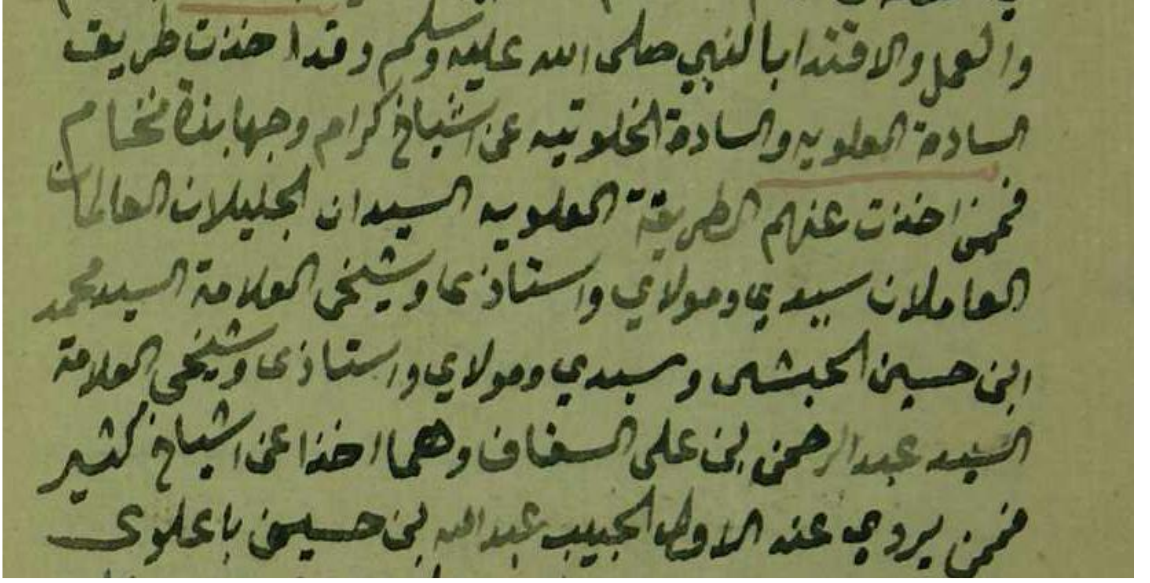 والعمل والاقتدا بالنبي صلى الله عليه وسلم وقد اخذت طريق
السادة العلويه والسادة الخلوتيه عن اشياخ كرام وجهابذة فخام
فممن اخذت عنهم الطريقة العلويه السيدان الجليلان العالمان
العاملان سيدي ومولاي واستاذى وشيخى العلامة السيد محمد
ابن حسين الحبشى وسيدي ومولاي واستاذى وشيخى العلامة
السيد عبد الرحمن بن على السقاف وهما اخذا عن اشياخ كثير
فممن يروي عنه الاول الحبيب عبد الله بن حسين باعلوى